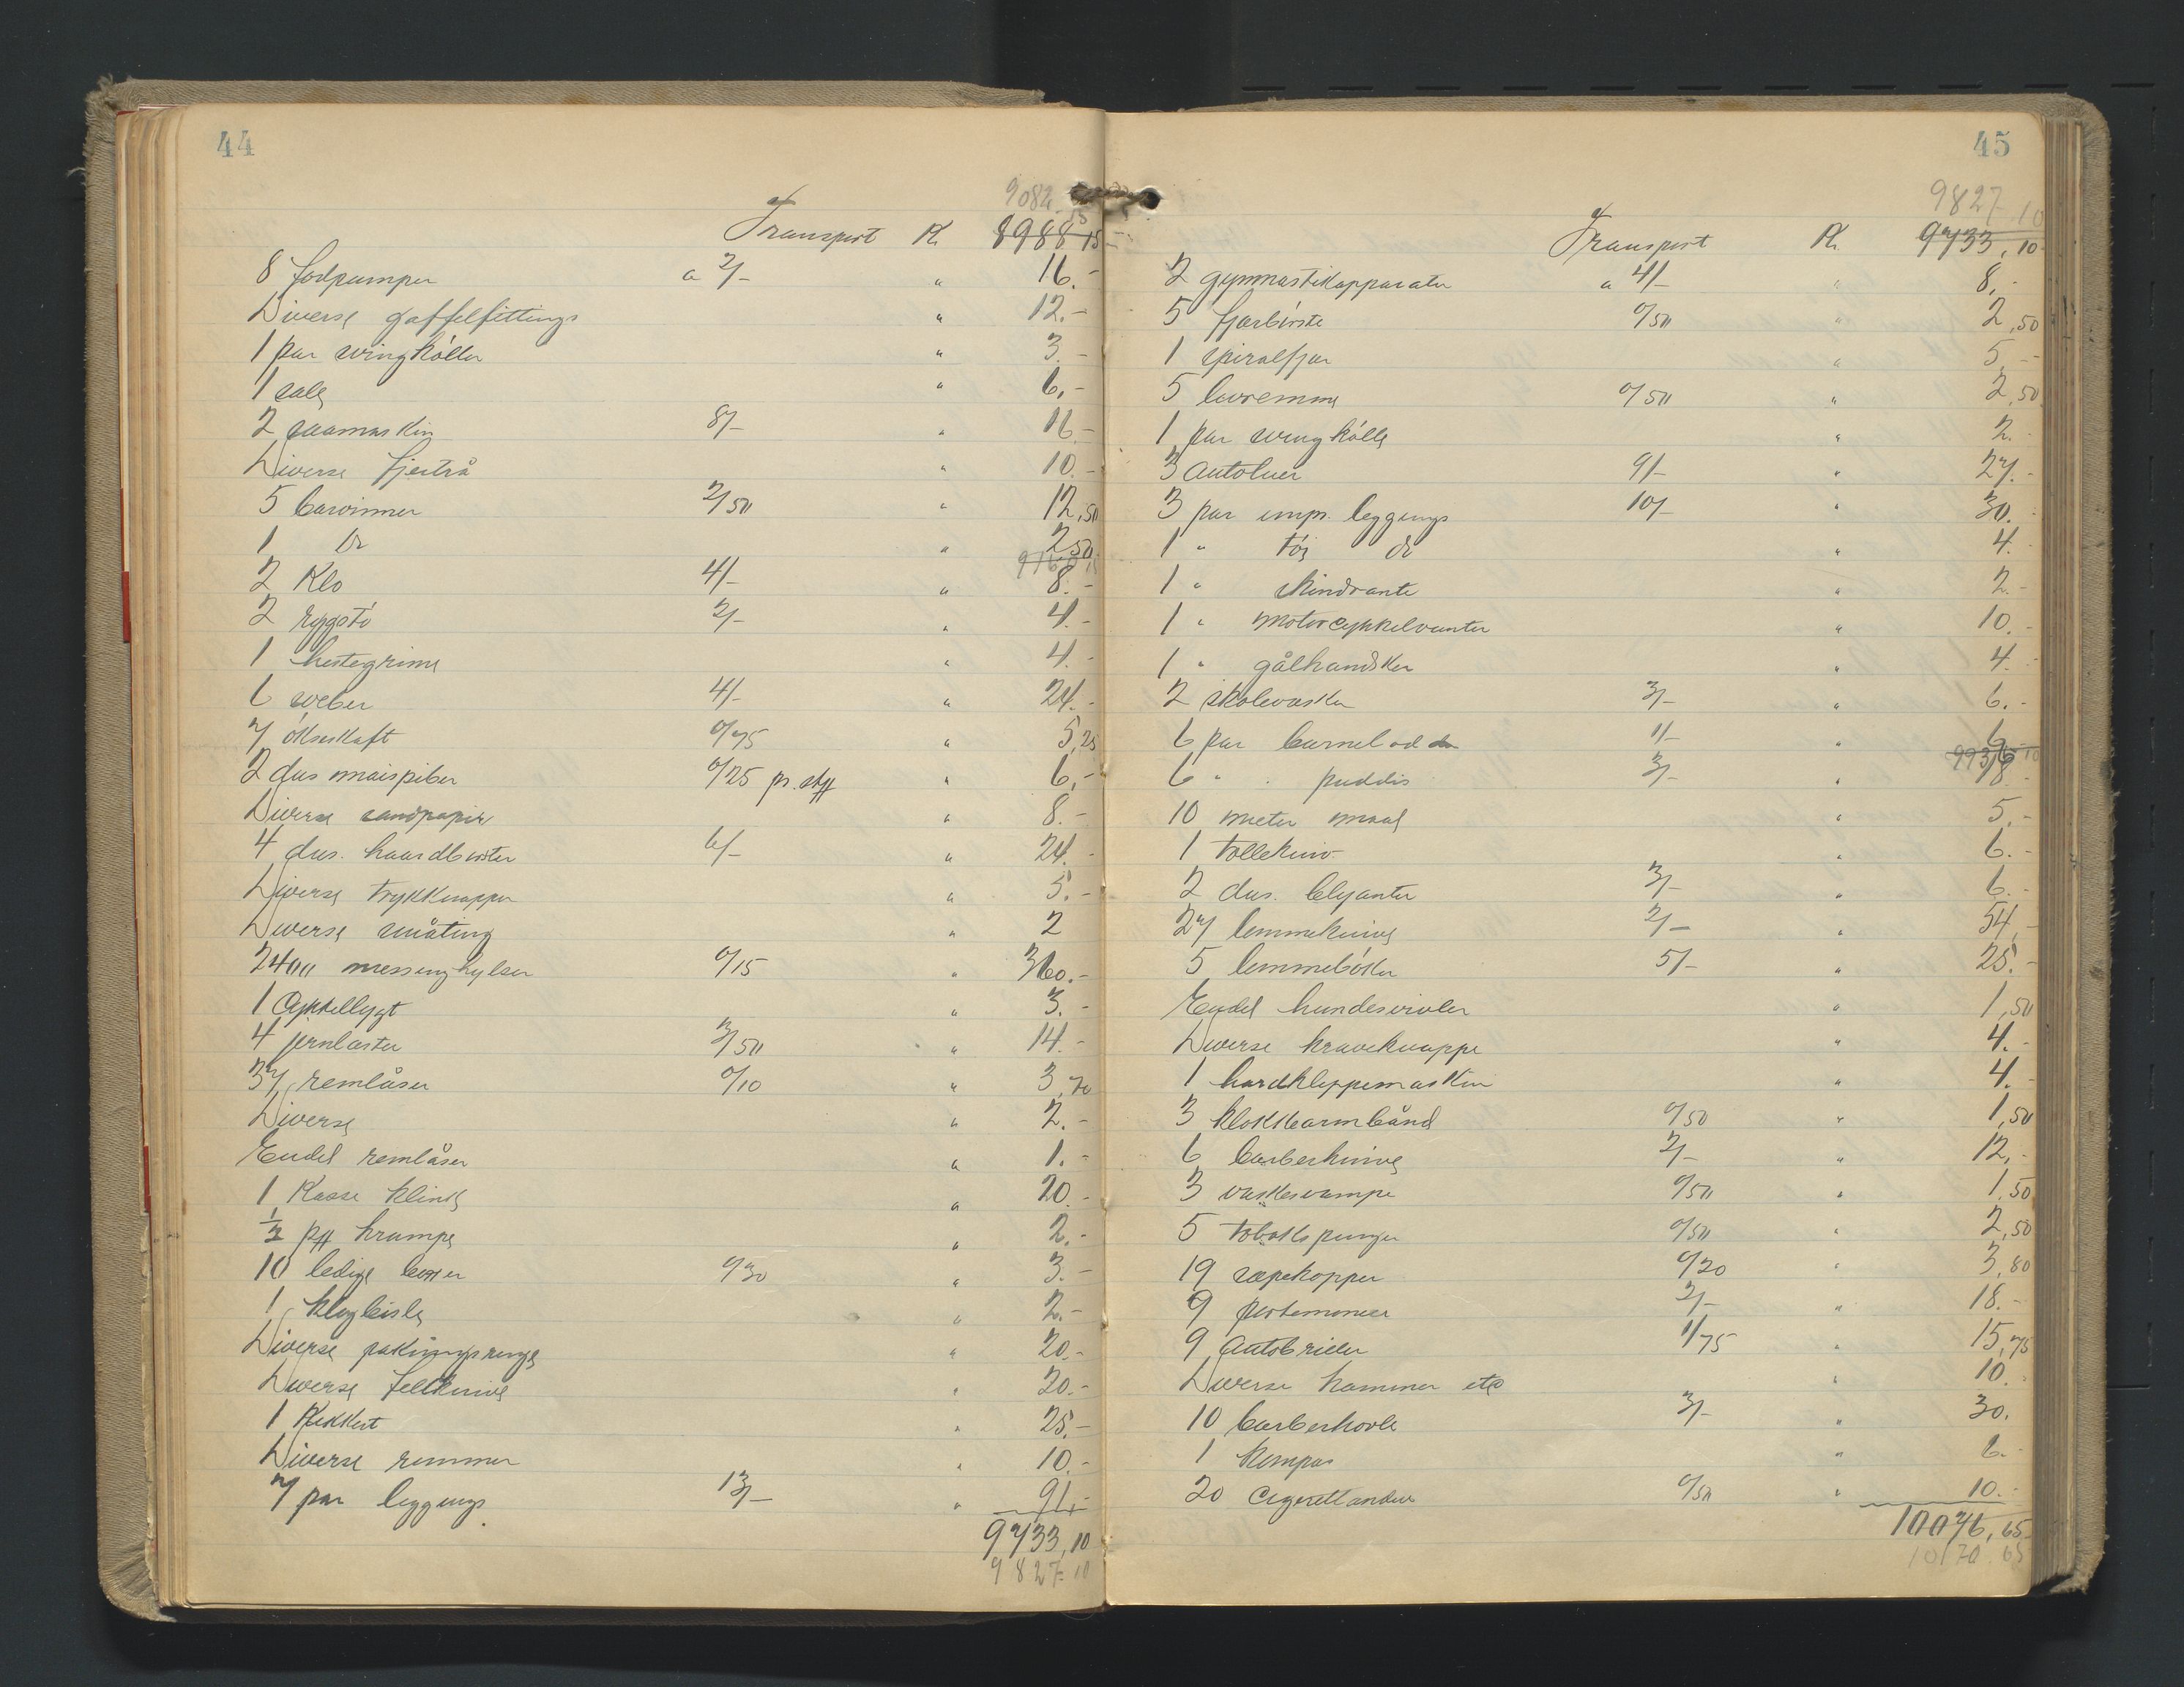 44
9082.15
Transport Kr. 8988 15
8 fodpumper a 2/- " 16.-
Diverse gaffelfittings " 12.-
1 par svingkøller " 3.-
1 salg " 6,-
2 saamaskin 8/- " 16.-
Diverse fjertrå " 10.-
5 barvinner 2/50 " 12,50
1 Do " 2,50
2 Klo 4/- " 8.-
2 rygstø 2/- " 4.-
1 hestegrime " 4.-
6 sveber 4/- " 24.-
7 økseskaft 0/75 " 5,25
2 dus maispiber 0/25 pr. stk " 6,-
Diverse sandpapir " 8.-
4 dus. haardbørster 6/- " 24.-
Diverse trykknapper " 5.-
Diverse småting " 2
2400 messinghylser 0/15 " 360.-
1 Cykkellygt " 3.-
4 jernlaster 3/50 " 14.-
37 remlåser 0/10 " 3,70
Diverse " 2.-
Endel remlåser " 1.-
1 Kasse klinke " 20.-
1/2 pk krampe " 2.-
10 ledige boxer 0/30 " 3.-
1 klogbisle " 2.-
Diverse pakningsringe " 20.-
Diverse fellknive " 20.-
1 Kikkert " 25.-
Diverse remmer " 10.-
7 par leggings 13/- " 91.-
9733,10
9827.10
45
9827 10
Transport Kr. 9733,10
2 gymnastikapparater a 4/- " 8,-
5 fjærbørste 0/50 " 2,50
1 spiralfjær " 5,-
5 bøvremme 0/50 " 2,50
1 par svingkølle " 2.-
3 autoluer 9/- " 27.-
3 par imp. leggings 10/- " 30.-
1 " tøj do " 4.-
1 " skindvante " 2.-
1 " motorcykkelvanter " 10.-
1 " gålhandsker " 4.-
2 skolevasker 3/- " 6.-
6 par barnelodde 1/- " 6.-
6 " " puddis 3/- " 18.-
10 meter maal " 5.-
1 tollekniv " 6.-
2 dus. blyanter 3/- " 6.-
27 lommeknive 2/- " 54,-
5 lommebøker 5/- " 25.-
Endel hundesvivler " 1,50
Diverse kraveknappe " 4.-
1 hardklippemaskin " 4.-
3 klokkearmbånd 0/50 " 1,50
6 barberknive 2/- " 12,-
3 vaskesvampe 0/50 " 1,50
5 tobakspunger 0/50 " 2,50
19 sæpekopper 0/20 " 3,80
9 portemoneer 2/- " 18.-
9 Autobriller 1/75 " 15,75
Diverse kammer etc " 10.-
10 barberhøvle 3/- " 30.
1 Kompas " 6.-
20 Cigarettander 0/50 " 10.-
10076,65
10170.65